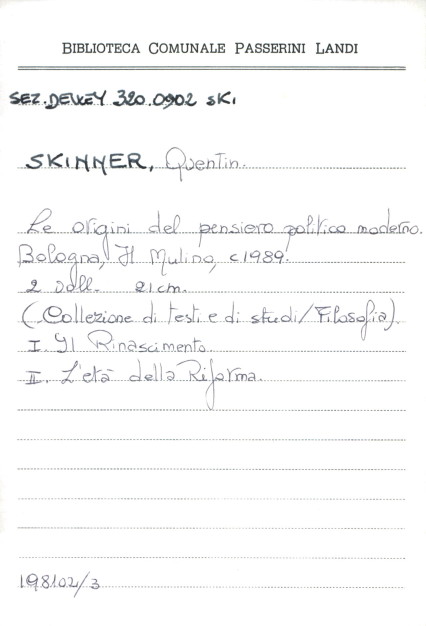 BIBLIOTECA COMUNALE PASSERINI LANDI
SEZ. DEWEY 320.0902 SKI
SKINNER, Quentin.
Le origini del pensiero politico moderno.
Bologna, Il Mulino, c1989.
2 voll. 21cm.
(Collezione di testi e di studi/Filosofia).
I. Il Rinascimento.
II. L'età della Riforma.
198102/3